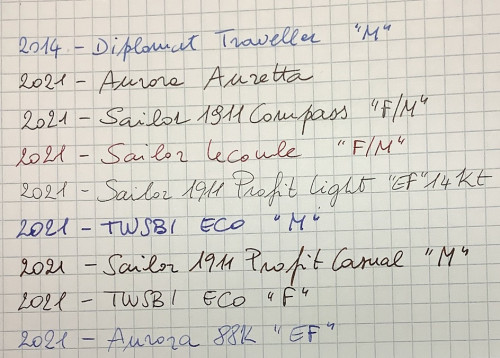 2014 - Diplomat Traveller "M"
2021 - Aurora Auretta
2021 - Sailor 1911 Compass "F/M"
2021 - Sailor Lecoule "F/M"
2021 - Sailor 1911 Profit Light "EF" 14kt
2021 - TWSBI ECO "M"
2021 - Sailor 1911 Profit Casual "M"
2021 - TWSBI ECO "F"
2021 - Aurora 88K "EF"